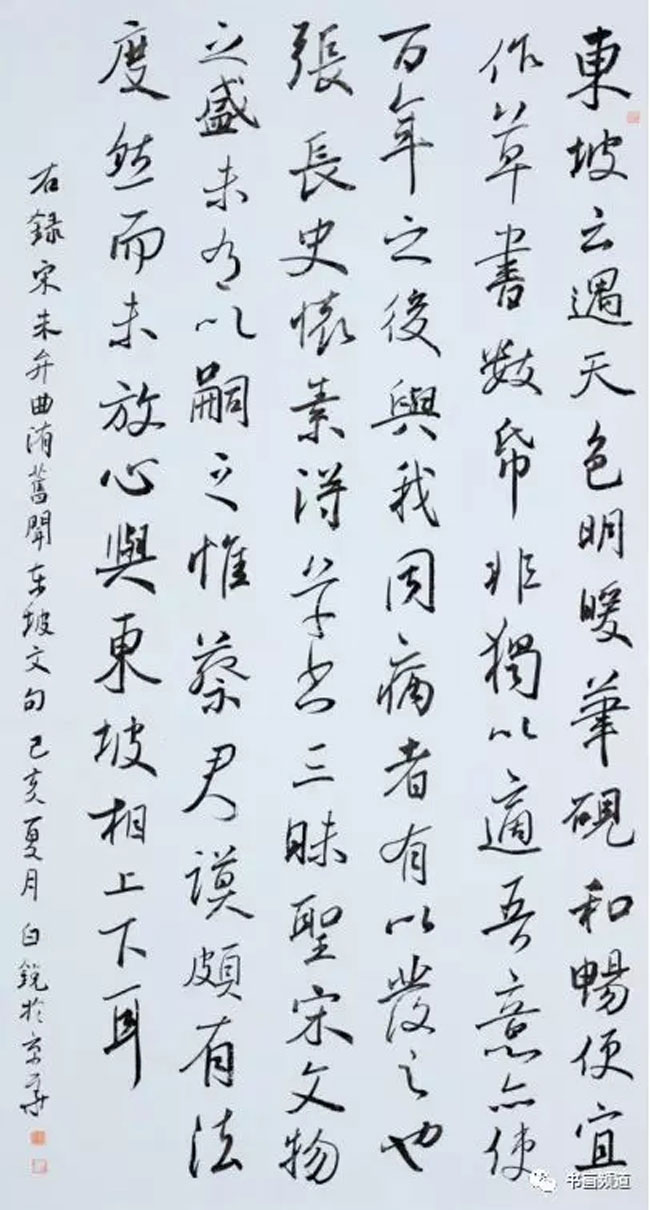 東坡云遇天色明暖筆硯和暢便宜
作草書數紙非獨以適吾意亦使
百年之後與我同病者有以發之也
張長史懷素得草書三昧聖宋文物
之盛未有以嗣之惟蔡君謨頗有法
度然而未放心與東坡相上下耳
右録宋朱弁曲洧舊聞东坡文句己亥夏月白锐於京華
书画频道